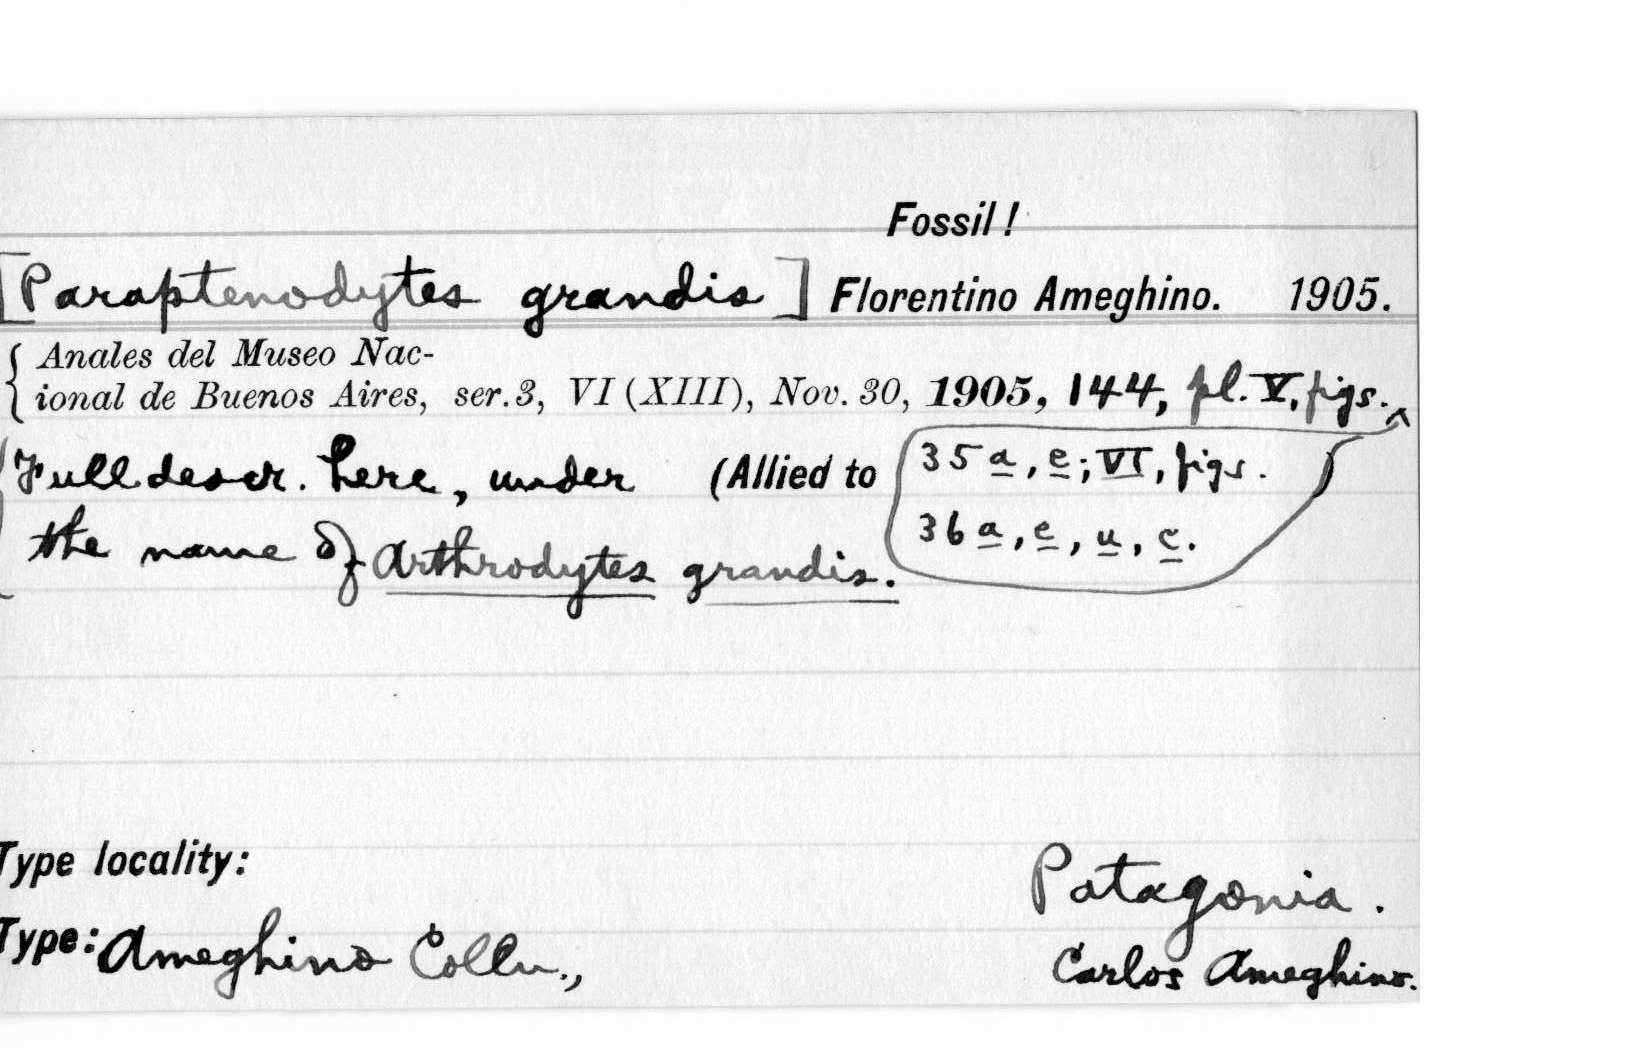 Fossil!
[Paraptenodytes grandis] Florentino Ameghino. 1905.
Anales del Museo Nac-
ional de Buenos Aires, ser. 3, VI (XIII), Nov. 30, 1905, 144, pl. V, figs. ^
35 a, e; VI, figs.
36 a, e, u, c.
(Full descr. here, under (Allied to )
the name of Arthrodytes grandis.
Type locality:
Patagonia.
Type: Ameghino Colln.,
Carlos Ameghino.